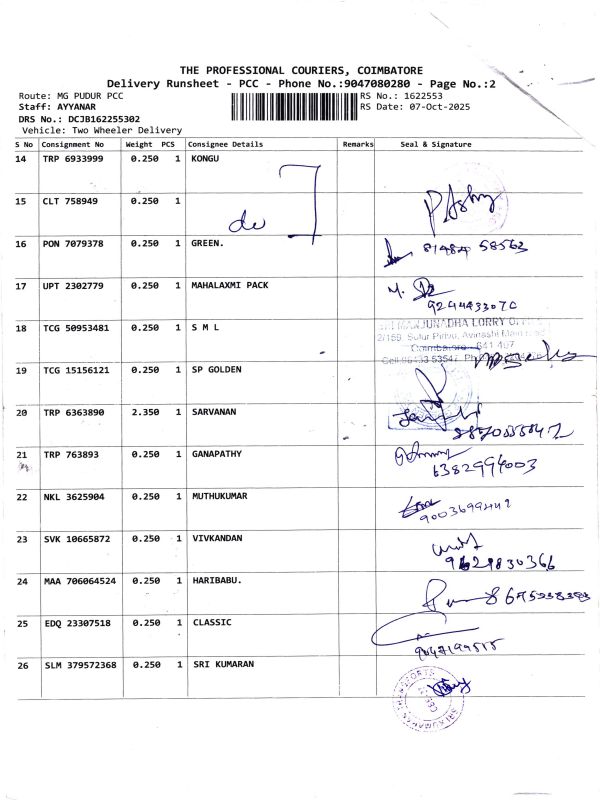 THE PROFESSIONAL COURIERS, COIMBATORE
Delivery Runsheet - PCC - Phone No.:9047080280 - Page No.:2
Route: MG PUDUR PCC RS No.: 1622553
Staff: AYYANAR RS Date: 07-Oct-2025
DRS No.: DCJB162255302
Vehicle: Two Wheeler Delivery
S No Consignment No Weight PCS Consignee Details Remarks Seal & Signature
14 TRP 6933999 0.250 1 KONGU
15 CLT 758949 0.250 1
16 PON 7079378 0.250 1 GREEN.
17 UPT 2302779 0.250 1 MAHALAXMI PACK
9244433070
18 TCG 50953481 0.250 1 S M L
19 TCG 15156121 0.250 1 SP GOLDEN
20 TRP 6363890 2.350 1 SARVANAN
21 TRP 763893 0.250 1 GANAPATHY
6382994003
22 NKL 3625904 0.250 1 MUTHUKUMAR
23 SVK 10665872 0.250 1 VIVKANDAN
9629830366
24 MAA 706064524 0.250 1 HARIBABU.
25 EDQ 23307518 0.250 1 CLASSIC
26 SLM 379572368 0.250 1 SRI KUMARAN